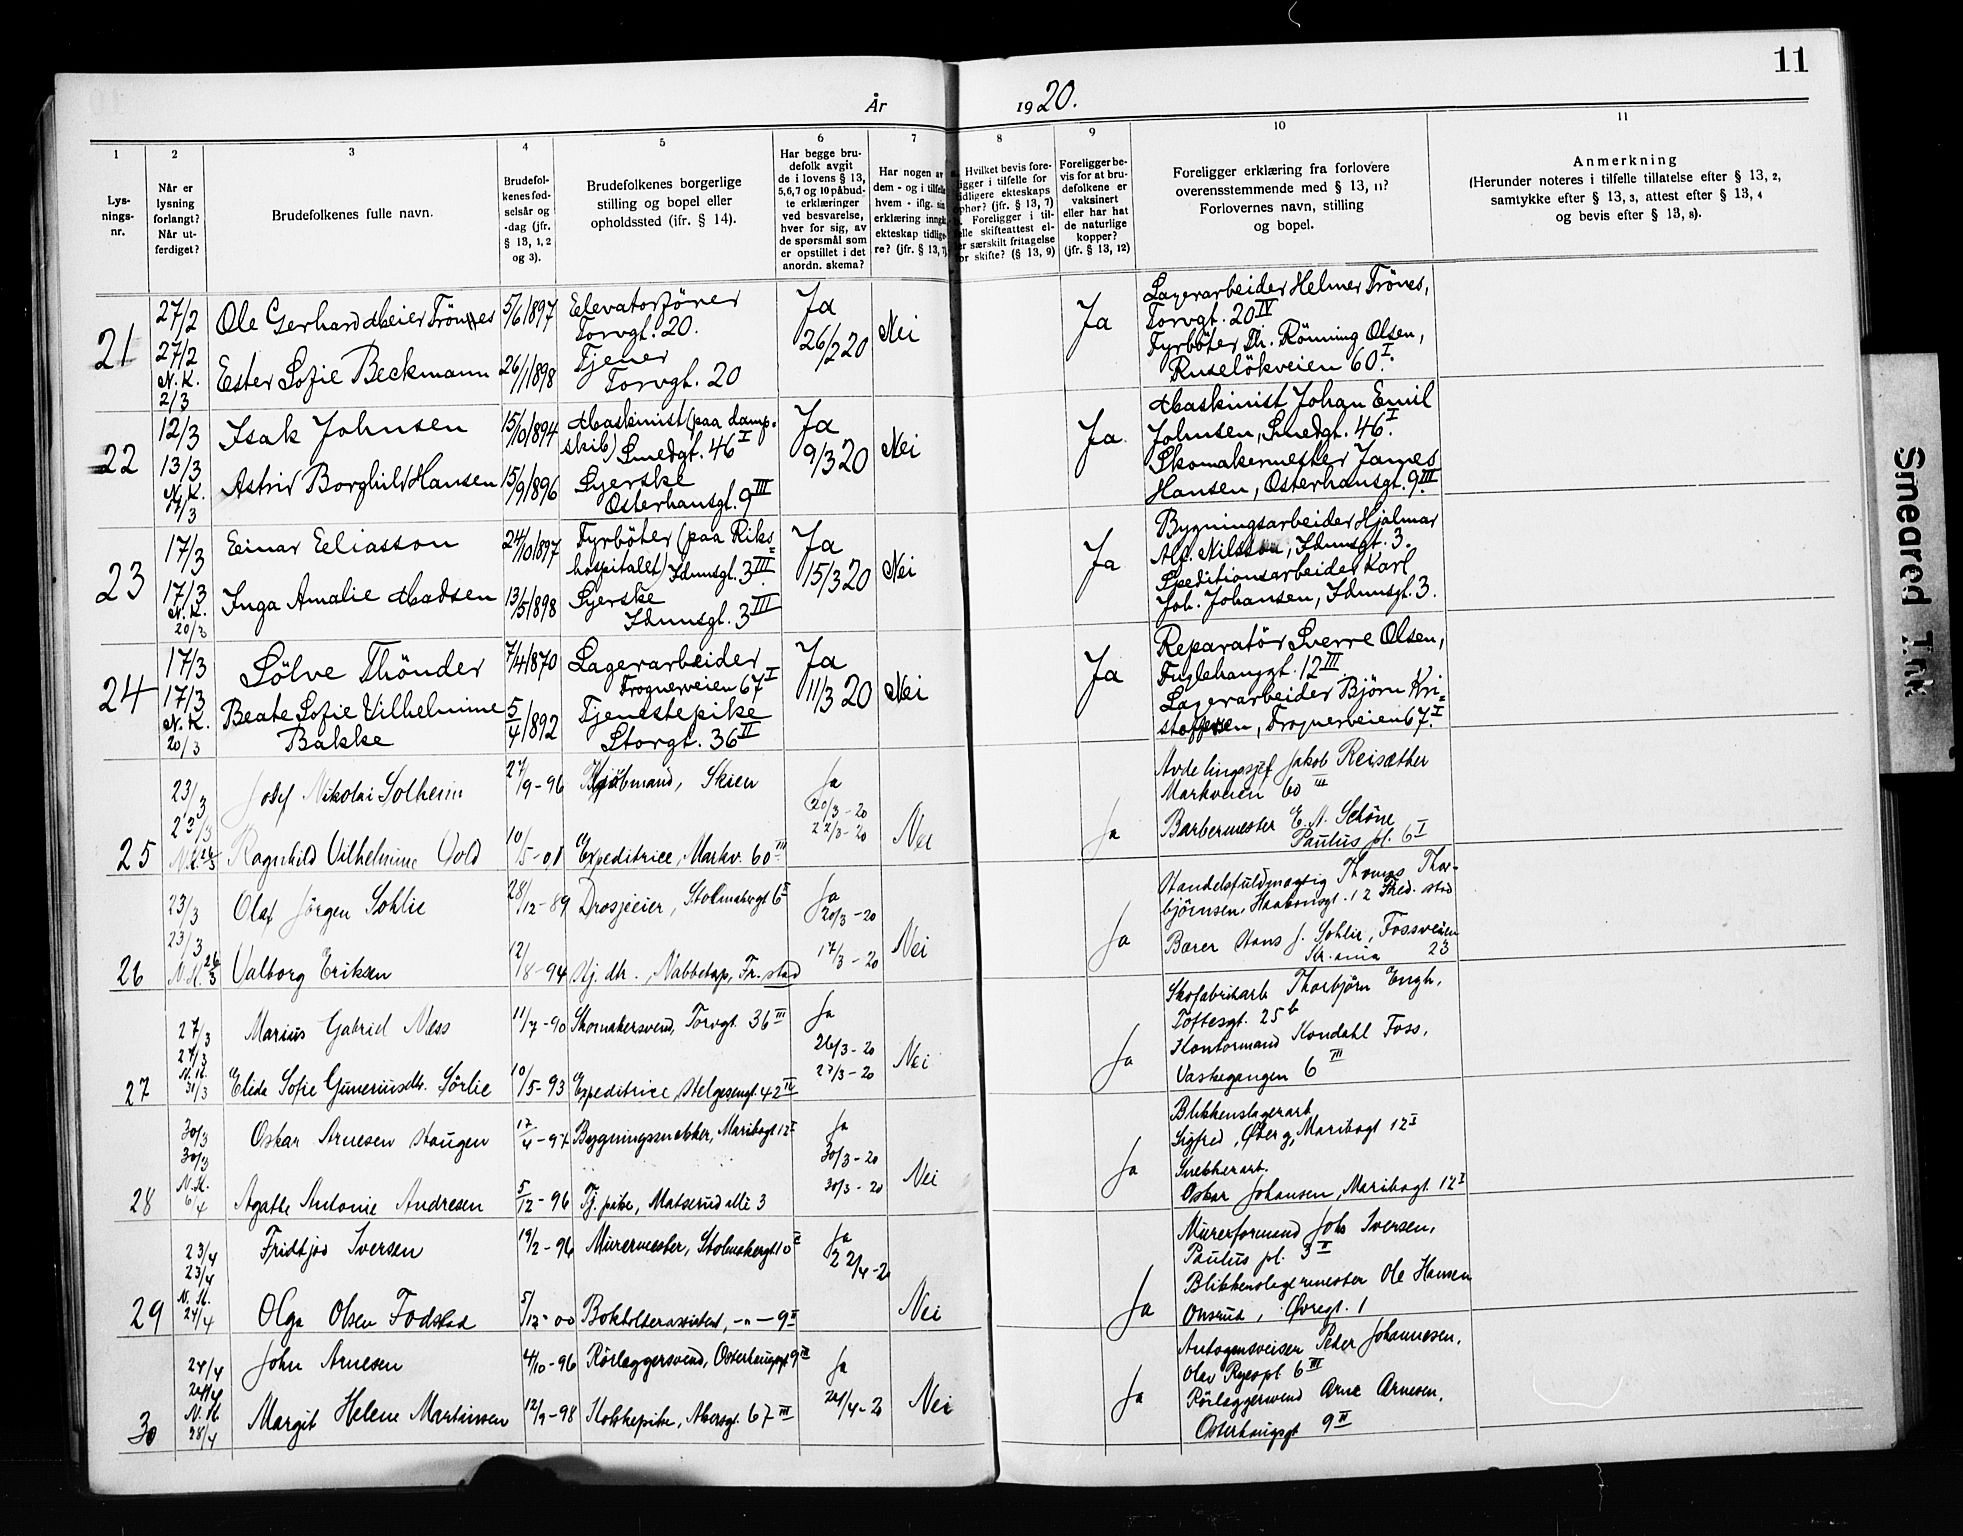 11
År 1920.
1 2 3 4 5 6 7 8 9 10 11
Lys-
nings-
nr.
Når er
lysning
forlangt?
Når ut-
ferdiget?
Brudefolkenes fulle navn.
Brudefol-
kenes fød-
selsår og
-dag (jfr.
§ 13, 1, 2
og 3).
Brudefolkenes borgerlige
stilling og bopel eller
opholdssted (jfr. § 14).
Har begge bru-
defolk avgit
de i lovens § 13,
5, 6, 7 og 10 påbud-
te erklæringer
ved besvarelse,
hver for sig, av
de spørsmål som
er opstillet i det
anordn. skema?
Har nogen av
dem - og i tilfelle
hvem - iflg. sin
erklæring inngått
ekteskap tidlige-
re? (jfr. § 13, 7)
Hvilket bevis fore-
ligger i tilfelle for
tidligere ekteskaps
ophør? (jfr. § 13, 7)
Foreligger i til-
felle skifteattest el-
ler særskilt fritagelse
for skifte? (§ 13, 9)
Foreligger be-
vis for at bru-
defolkene er
vaksinert
eller har hat
de naturlige
kopper?
(jfr. § 13, 12)
Foreligger erklæring fra forlovere
overensstemmende med § 13, 11?
Forlovernes navn, stilling
og bopel.
Anmerkning
(Herunder noteres i tilfelle tillatelse efter § 13, 2,
samtykke efter § 13, 3, attest efter § 13, 4
og bevis efter § 13, 8).
21
27/2
27/2
N. K.
2/3
Ole Gerhard Meier Trönnes
Ester Sofie Beckmann
5/6 1897
26/1 1898
Elevatorförer
Torvgt. 20.
Tjener
Torvgt. 20
Ja
26/2 20
Nei
Ja
Lagerarbeider Helmer Trönes,
Torvgt. 20 IV
Fyrböter Th. Rönning Olsen,
Ruselökveien 60 I.
22
12/3
13/3
N. K.
17/3
Isak Johnsen
Astrid Borghild Hansen
15/10 1894
15/9 1896
Maskinist (paa damp-
skib) Smedgt. 46 I
Syerske
Osterhausgt. 9 III
Ja
9/3 20
Nei
Ja.
Maskinist Johan Emil
Johnsen, Smedgt. 46 I.
Skomakermester James
Hansen, Osterhausgt. 9 III
23
17/3
17/3
N. K.
20/3
Einar Eliasson
Inga Amalie Madsen
24/10 1897
13/5 1898
Fyrböter (paa Riks-
hospitalet) Idunsgt. 3 III.
Syerske
Idunsgt. 3 III
Ja
15/3 20
Nei
Ja
Bygningsarbeider Hjalmar
Alf. Nilsson, Idunsgt. 3.
Speditionsarbeider Karl
Joh. Johansen, Idunsgt. 3.
24
17/3
17/3
N. K.
20/3
Sölve Thönder
Beate Sofie Vilhelmine
Bakke
7/4 1870
5/4 1892
Lagerarbeider
Frognerveien 67 I
Tjenestepike
Storgt. 36 II
Ja
11/3 20
Nei
Ja
Reparatör Sverre Olsen,
Fuglehauggt. 12 III.
Lagerarbeider Björn Kri-
stoffersen, Frognerveien 67 I.
25
23/3
23/3
N.K. 26/3
Josef Nikolai Solheim
Ragnhild Vilhelmine Vold
27/9-96
10/5-01
Kjöbmand, Skien
Expeditrice, Markv. 60 III
Ja
20/3-20
22/3-20
Nei
Ja
Avdelingssjef Jakob Reisæther
Markveien 60 III
Barbermester E. A. Schöne
Paulus pl. 6 I
26
23/3
23/3
N.K. 26/3
Olaf Jörgen Sohlie
Valborg Eriksen
28/12-89
12/8-94
Drosjeeier, Stolmakergt 6 II
Hj. dtr., Nabbetorp, Fr.stad
Ja
20/3-20
17/3-20
Nei
Ja
Handelsfuldmagtig Thomas Thor-
björnsen, Haakonsgt. 12 Fred.stad
Bærer Hans J. Sohlie, Fossveien
Kr.ania 23
27
27/3
27/3
N.K.
31/3
Marius Gabriel Ness
Elida Sofie Guneriusdtr. Sörlie
11/7-90
10/5-93
Skomakersvend, Torvgt. 36 III
Expeditrice, Helgesengt. 42 IV
Ja
26/3-20
27/3-20
Nei
Ja
Skofabrikarb Thorbjörn Engh,
Toftesgt. 25 b
Kontormand Kondahl Foss,
Vaskegangen 6 III
28
30/3
30/3
N.K.
6/4
Oskar Arnesen Haugen
Agathe Antonie Andresen
17/4-97
5/12-96
Bygningssnekker, Maribogt 12 I
Tj. pike, Matserud alle 3
Ja
30/3-20
30/3-20
Nei
Ja
Blikkenslagerarb
Sigfred Öberg, Maribogt 12 I
Snekkerarb.
Oskar Johansen, Maribogt. 12 I
29
23/4
23/4
N.K.
27/4
Fridtjov Iversen
Olga Olsen Fodstad
19/2-96
5/12-00
Murermester, Stolmakergt 10 II
Bokholderassistent, -"- 9 II
Ja
22/4-20
Nei
Ja
Murerformand Joh Iversen,
Paulus pl. 3 II
Blikkenslagermester Ole Hansen
Onsrud, Övregt. 1
30
24/4
24/4
N.K.
28/4
John Arnesen
Margit Helene Martinsen
4/10-96
12/9-98
Rörlæggersvend, Osterhausgt 9 III
Kokkepike, Akersgt. 67 III
Ja
24/4-20
Nei
Ja
Autogensveiser Peder Johannesen,
Olav Ryespl 6 III
Rörlæggersvend Arne Arnesen,
Osterhausgt 9 II
Smeared Ink